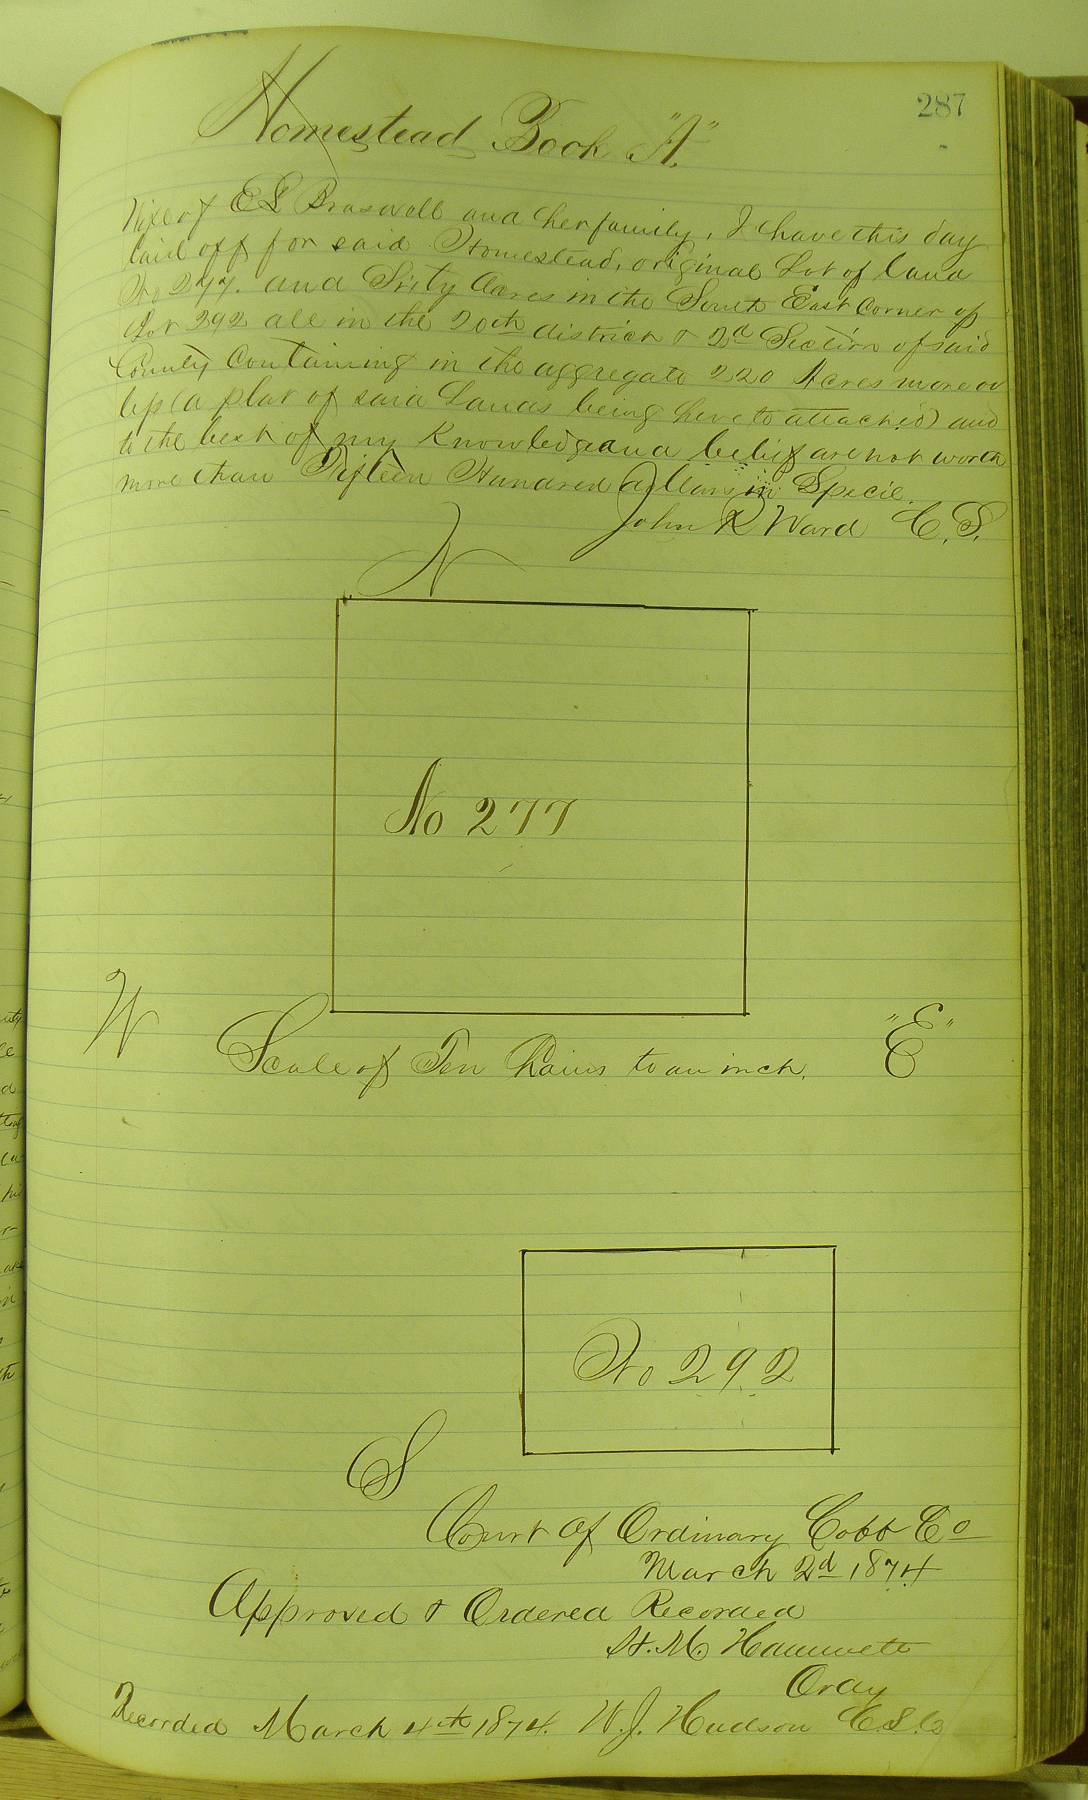 287
Homestead Book "A."
Wife of E L Braswell and her family, I have this day
laid off for said Homestead, original Lot of land
No 277. and Sixty Acres in the South East corner of
Lot 292 all in the 20th district & 2d Section of said
County Containing in the aggregate 220 Acres more or
less (a plat of said Lands being hereto attached) and
to the best of my Knowledge and belief are not worth
more than Fifteen Hundred dollars in Specie.
John R Ward C. S.
N
No 277
W
"E"
Scale of Ten Chains to an inch.
No 292
S
Court of Ordinary Cobb Co
March 2d 1874
Approved & Ordered Recorded
H. M. Hammett
Ordy
Recorded March 4th 1874. W. J. Hudson